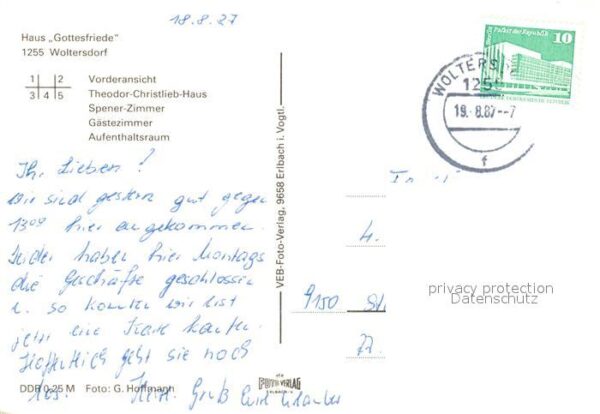 18.8.87
Haus „Gottesfriede"
1255 Woltersdorf
1 2
3 4 5
Vorderansicht
Theodor-Christlieb-Haus
Spener-Zimmer
Gästezimmer
Aufenthaltsraum
Ihr Lieben!
Wir sind gestern gut gegen
1300 hier angekommen.
Leider haben hier Montags
die Geschäfte geschlossen
u. so konnten wir erst
jetzt eine Karte kaufen.
Hoffentlich geht sie noch
los. Herzl. Gruß
DDR 0,25 M Foto: G. Hoffmann
VEB-Foto-Verlag, 9658 Erlbach i. Vogtl.
FOTO VERLAG
10
WOLTERSD
125
19.-8.87--7
f
4.
9150
77.
privacy protection
Datenschutz